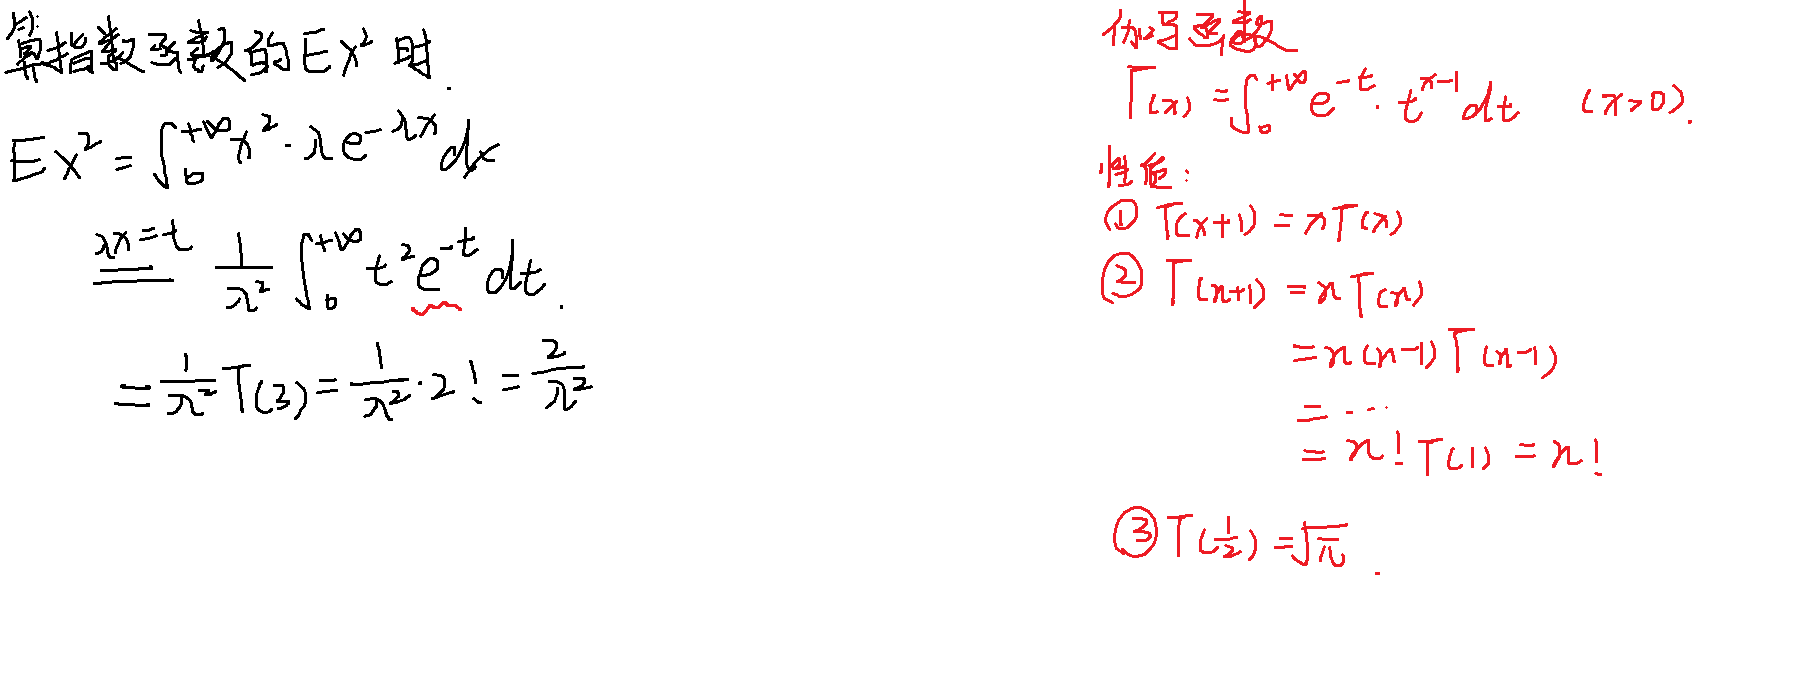 算指数函数的EX²时.
EX² = ∫₀^{+∞} x²·λe^{-λx}dx
\overset{λx=t}{=} \frac{1}{λ²} ∫₀^{+∞} t²e^{-t}dt.
= \frac{1}{λ²}Γ(3) = \frac{1}{λ²}·2! = \frac{2}{λ²}
伽马函数
Γ(x) = ∫₀^{+∞} e^{-t}·t^{x-1}dt (x>0).
性质:
① Γ(x+1) = xΓ(x)
② Γ(n+1) = nΓ(n)
= n(n-1)Γ(n-1)
= ...
= n!Γ(1) = n!
③ Γ(\frac{1}{2}) = √π.